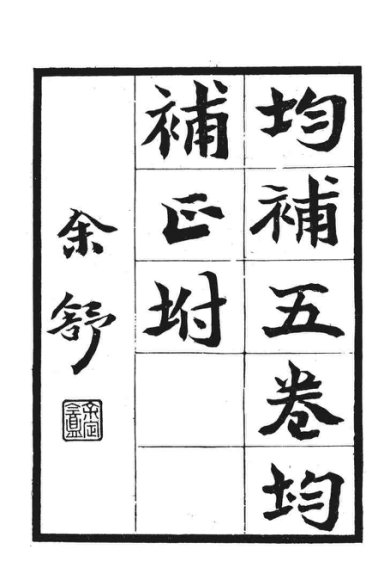 均補五卷均
補正坿
余舒